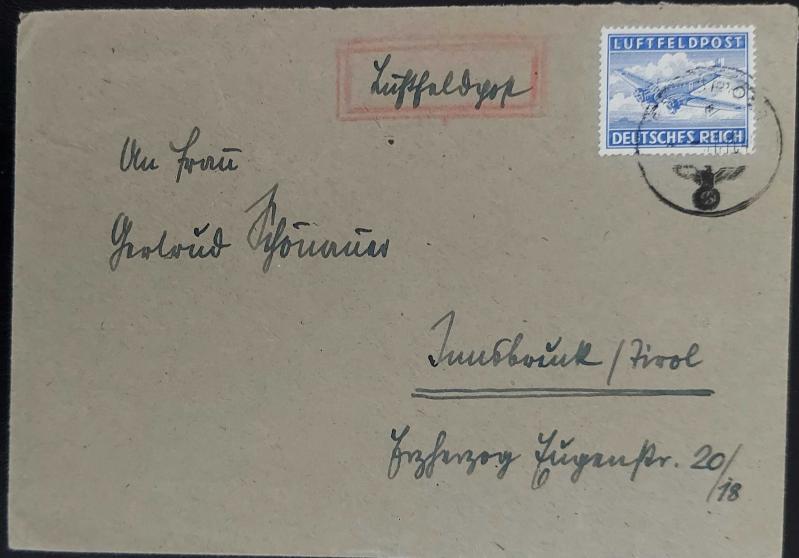 Luftfeldpost
LUFTFELDPOST
DEUTSCHES REICH
An Frau
Gertrud Schönauer
Innsbruck / Tirol
Erzherzog Eugenstr. 20/18